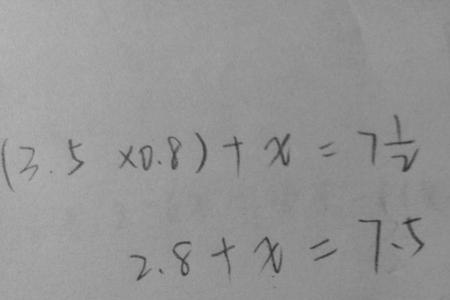 (3.5 ×0.8)+x=7½
2.8+x=7.5